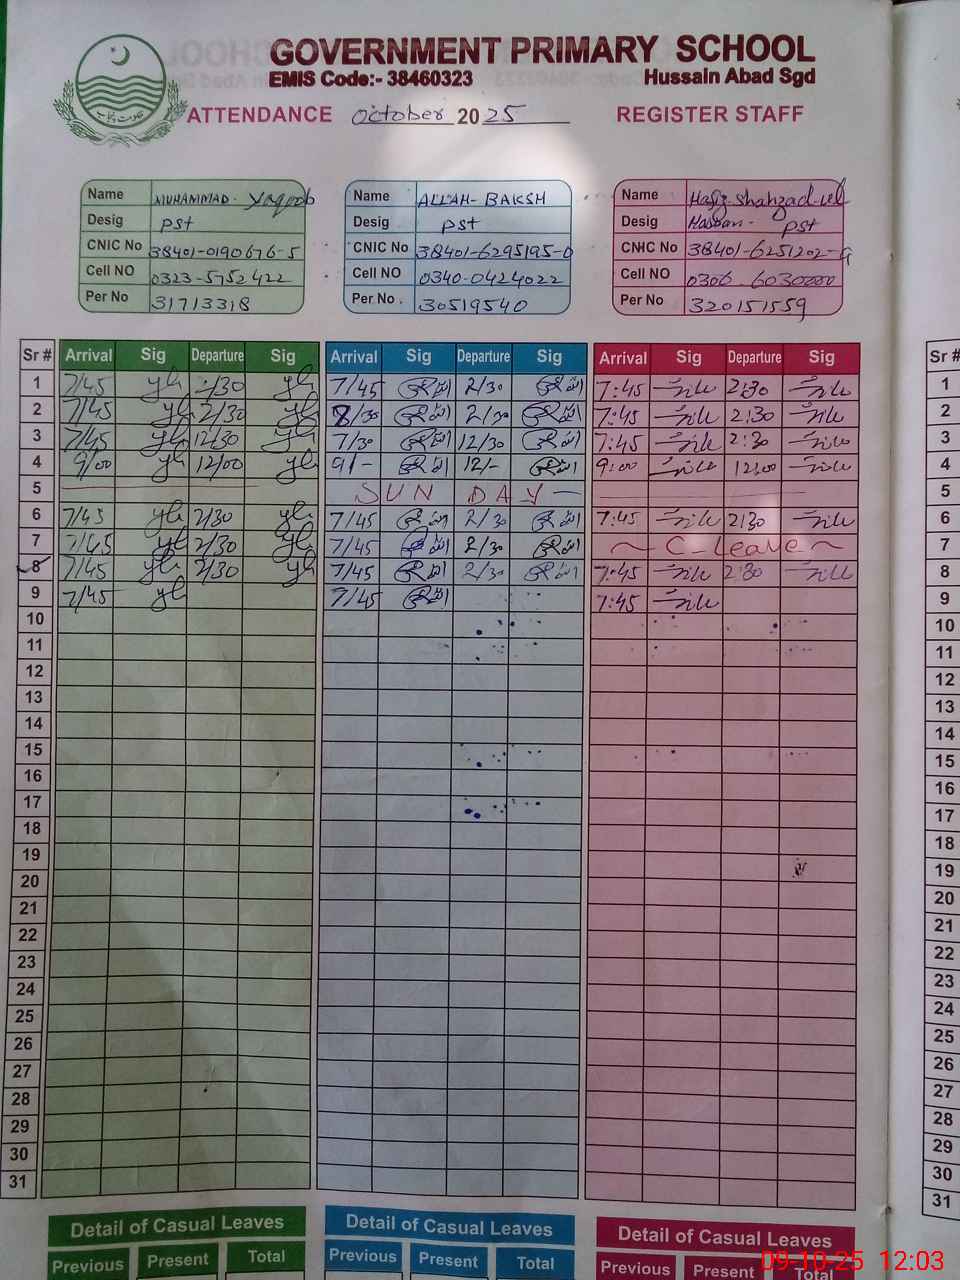 GOVERNMENT PRIMARY SCHOOL
EMIS Code:- 38460323 Hussain Abad Sgd
ATTENDANCE October 2025 REGISTER STAFF
Name MUHAMMAD- Yaqoob Name ALLAH- BAKSH Name Hafiz-Shahzad-ul
Desig PST Desig PST Desig Hassan- PST
CNIC No 38401-0190676-5 CNIC No 38401-6295195-0 CNIC No 38401-6251202-9
Cell NO 0323-5752422 Cell NO 0340-0424022 Cell NO 0306-6030000
Per No 31713318 Per No. 30519540 Per No 320151559
Sr # Arrival Sig Departure Sig Arrival Sig Departure Sig Arrival Sig Departure Sig Sr #
1 7/45 2/30 7/45 2/30 7:45 2:30 1
2 7/45 2/30 8/30 2/30 7:45 2:30 2
3 7/45 12/30 7/30 12/30 7:45 2:30 3
4 9/00 12/00 9/- 12/- 9:00 12:00 4
5 SUN DAY 5
6 7/45 2/30 7/45 2/30 7:45 2:30 6
7 7/45 2/30 7/45 2/30 C-Leave 7
8 7/45 2/30 7/45 2/30 7:45 2:30 8
9 7/45 7/45 7:45 9
10 10
11 11
12 12
13 13
14 14
15 15
16 16
17 17
18 18
19 19
20 20
21 21
22 22
23 23
24 24
25 25
26 26
27 27
28 28
29 29
30 30
31 31
Detail of Casual Leaves Detail of Casual Leaves Detail of Casual Leaves
Previous Present Total Previous Present Total Previous Present Total
09-10-25 12:03